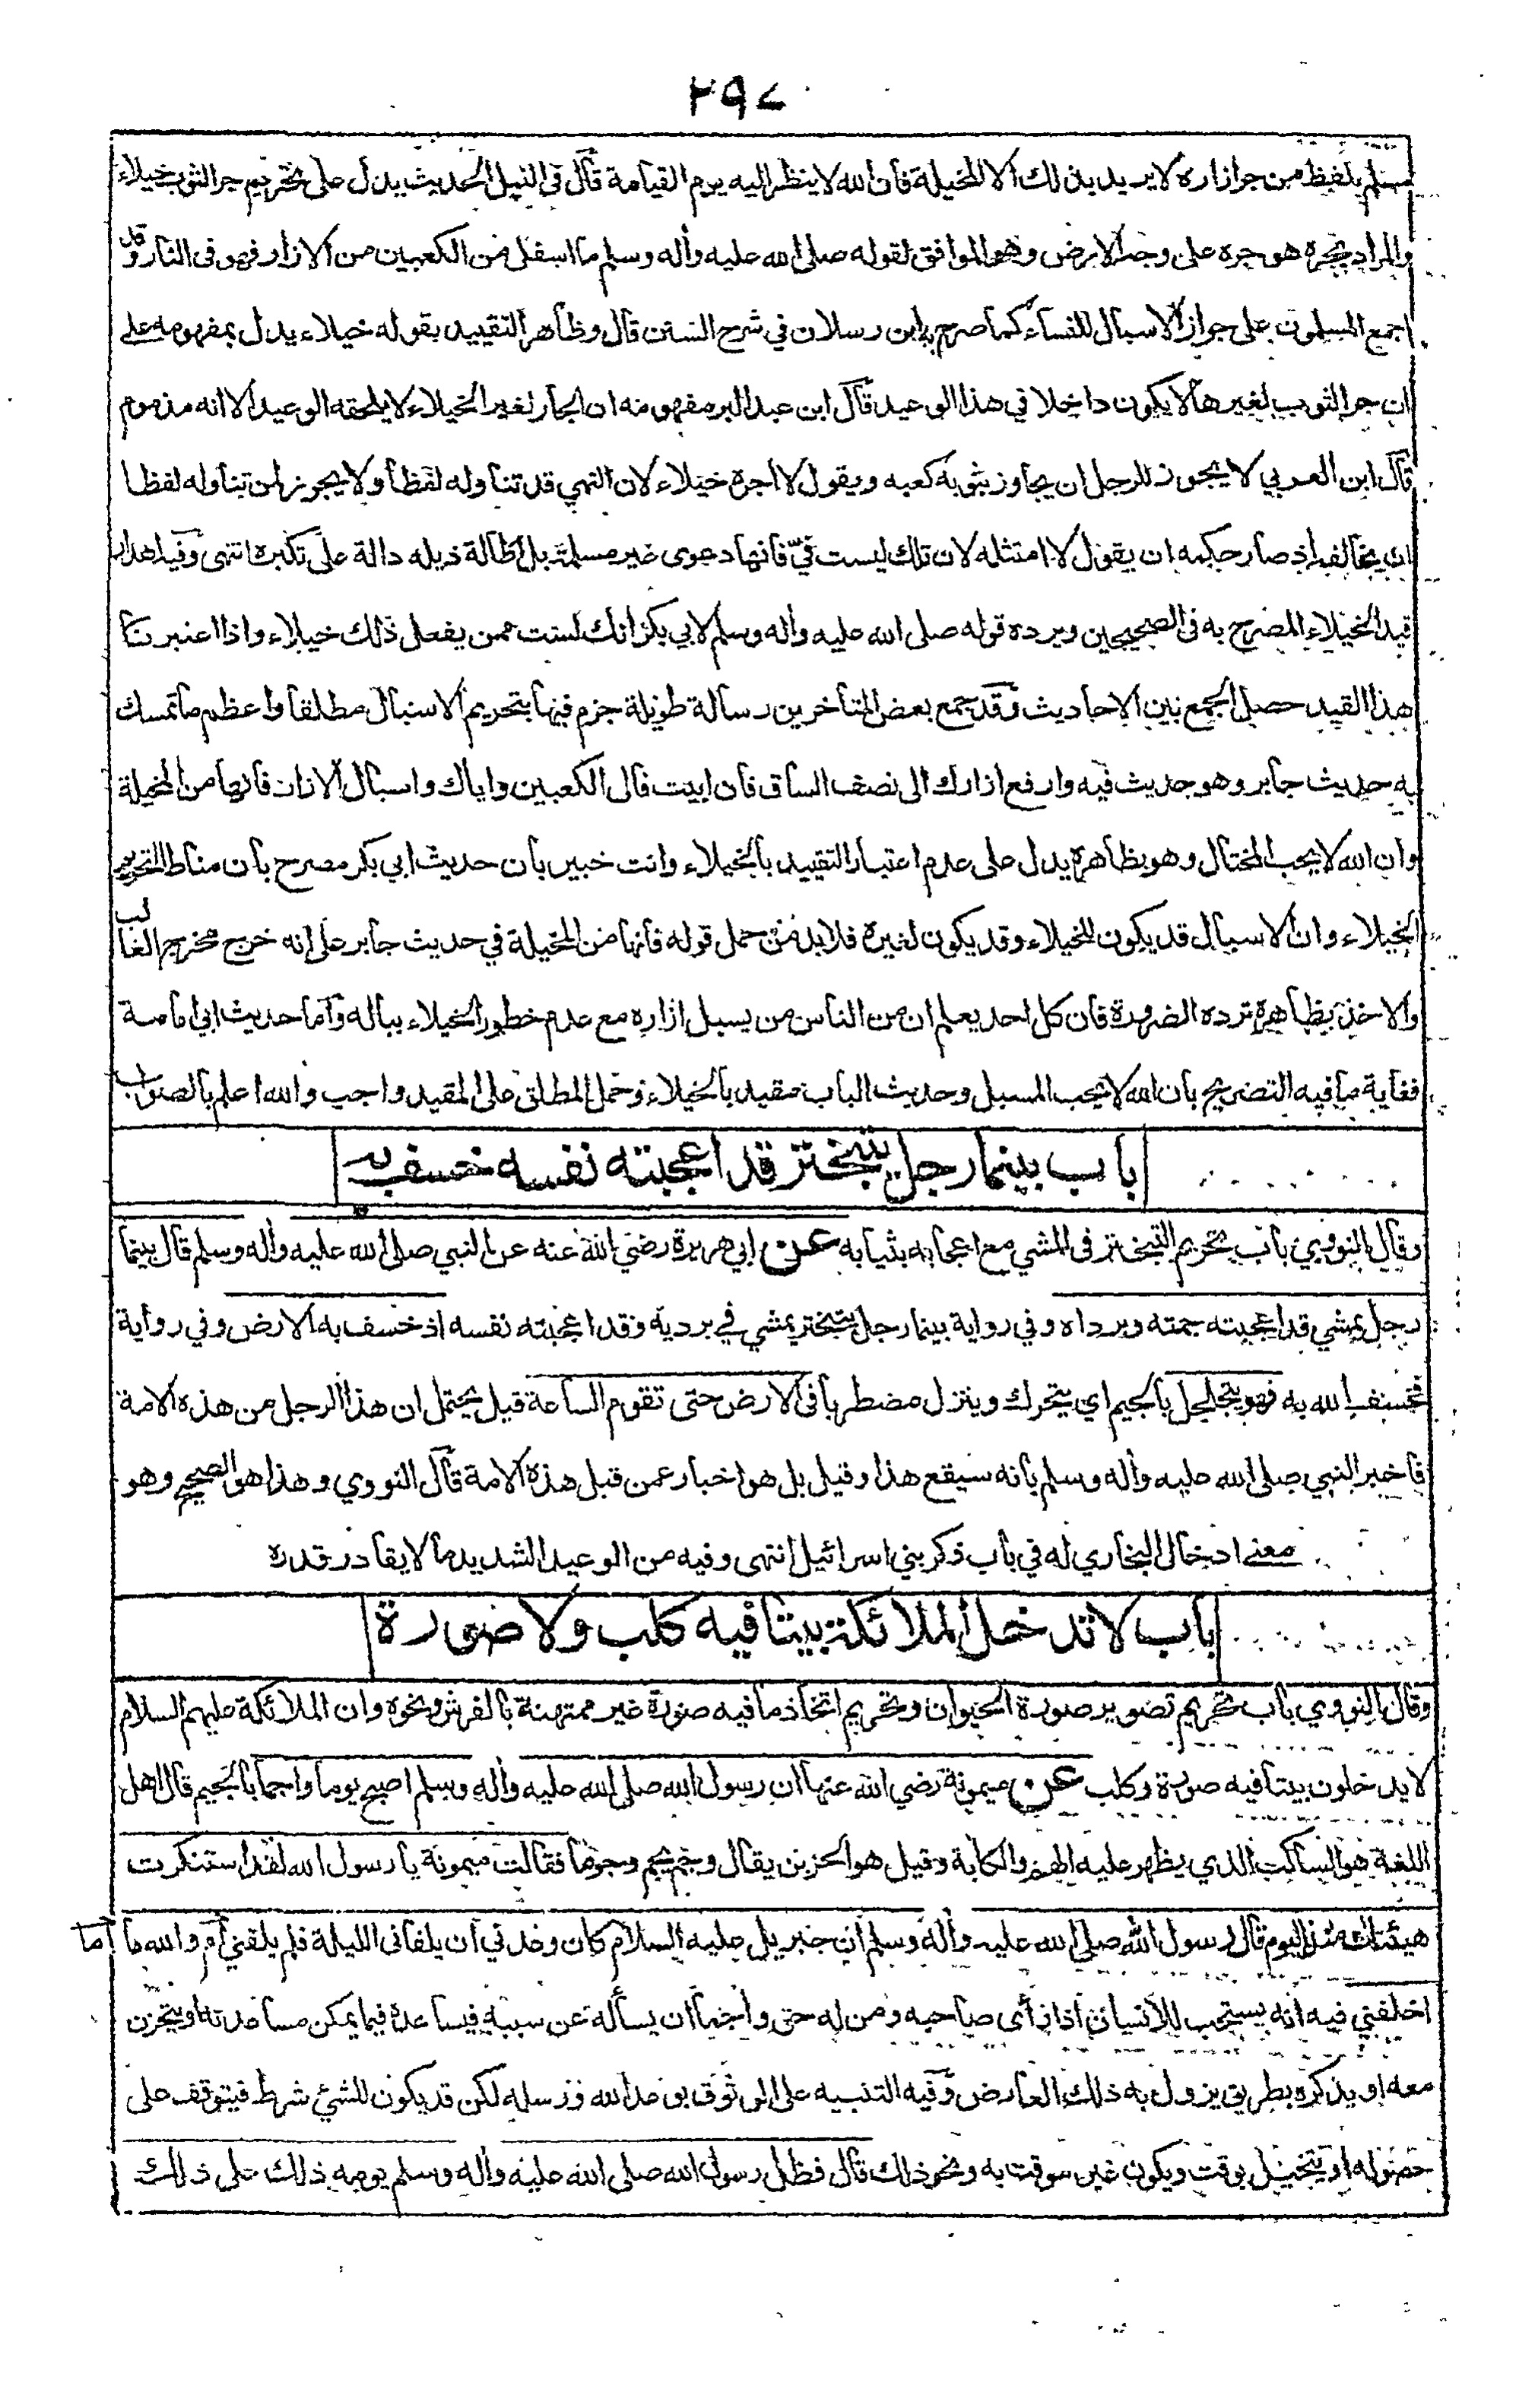 ٢٩٧
مسلم بلفظ من جر ازاره لا يريد بذلك الا المخيلة فان الله لا ينظر اليه يوم القيامة قال في النيل الحديث يدل على تحريم جر الثوب خيلاء
والمراد بجره هو جره على وجه الارض وهو الموافق لقوله صلى الله عليه وأله وسلم ما اسفل من الكعبين من الازار فهو فى النار وقد
اجمع المسلمون على جواز الاسبال للنساء كما صرح به ابن رسلان في شرح السنن قال وظاهر التقييد بقوله خيلاء يدل بمفهومه على
ان جر الثوب لغيرها لا يكون داخلا في هذا الوعيد قال ابن عبد البر مفهومه ان الجار لغير الخيلاء لا يلحقه الوعيد الا انه مذموم
قال ابن العربي لا يجوز للرجل ان يجاوز بثوبه كعبه ويقول لا اجره خيلاء لان النهي قد تناوله لفظا ولا يجوز لمن تناوله لفظا
ان يخالفه اذ صار حكمه ان يقول لا امتثله لان تلك ليست فيّ فانها دعوى غير مسلمة بل اطالة ذيله دالة على تكبره انتهى وفيه اهدار
قيد الخيلاء المصرح به فى الصحيحين ويرده قوله صلى الله عليه وأله وسلم لابي بكر انك لست ممن يفعل ذلك خيلاء واذا اعتبرنا
هذا القيد حصل الجمع بين الاحاديث وقد جمع بعض المتأخرين رسالة طويلة جزم فيها بتحريم الاسبال مطلقا واعظم ما تمسك
به حديث جابر وهو حديث فيه وارفع ازارك الى نصف الساق فان ابيت فالى الكعبين واياك واسبال الازار فانها من المخيلة
وان الله لا يحب المختال وهو بظاهره يدل على عدم اعتبار التقييد بالخيلاء وانت خبير بان حديث ابي بكر مصرح بان مناط التحريم
الخيلاء وان الاسبال قد يكون للخيلاء وقد يكون لغيره فلا بد من حمل قوله فانها من المخيلة في حديث جابر على انه خرج مخرج الغالب
والاخذ بظاهره ترده الضرورة فان كل احد يعلم ان من الناس من يسبل ازاره مع عدم خطور الخيلاء بباله واما حديث ابي امامة
فغاية ما فيه التصريح بان الله لا يحب المسبل وحديث الباب مقيد بالخيلاء وحمل المطلق على المقيد واجب والله اعلم بالصواب
باب بينما رجل يتبختر قد اعجبته نفسه خسف به
وقال النووي باب تحريم التبختر فى المشي مع اعجابه بثيابه عن ابي هريرة رضي الله عنه عن النبي صلى الله عليه وأله وسلم قال بينما
رجل يمشي قد اعجبته جمته وبرداه وفي رواية بينما رجل يتبختر يمشي في برديه وقد اعجبته نفسه اذ خسف به الارض وفي رواية
فخسف الله به فهو يتجلجل بالجيم اي يتحرك وينزل مضطربا فى الارض حتى تقوم الساعة قيل يحتمل ان هذا الرجل من هذه الامة
فاخبر النبي صلى الله عليه وأله وسلم بانه سيقع هذا وقيل بل هو اخبار عمن قبل هذه الامة قال النووي وهذا هو الصحيح وهو
معنى ادخال البخاري له في باب ذكر بني اسرائيل انتهى وفيه من الوعيد الشديد ما لا يقادر قدره
باب لا تدخل الملائكة بيتا فيه كلب ولا صورة
وقال النووي باب تحريم تصوير صورة الحيوان وتحريم اتخاذ ما فيه صورة غير ممتهنة بالفرش ونحوه وان الملائكة عليهم السلام
لا يدخلون بيتا فيه صورة وكلب عن ميمونة رضي الله عنها ان رسول الله صلى الله عليه وأله وسلم اصبح يوما واجما بالجيم قال اهل
اللغة هو الساكت الذي يظهر عليه الهم والكابة وقيل هو الحزين يقال وجم يجم وجوما فقالت ميمونة يا رسول الله لقد استنكرت
هيئتك منذ اليوم قال رسول الله صلى الله عليه وأله وسلم ان جبريل عليه السلام كان وعدني ان يلقانى الليلة فلم يلقني أم والله ما
أما
اخلفني فيه انه يستحب للانسان اذا رأى صاحبه ومن له حق واجما ان يسأله عن سببه فيساعده فيما يمكن مساعدته او يتحزن
معه او يذكره بطريق يزول به ذلك العارض وفيه التنبيه على الوثوق بوعد الله ورسله لكن قد يكون للشئ شرط فيتوقف على
حصوله او يتخيل بوقت ويكون غير موقت به ونحو ذلك قال فظل رسول الله صلى الله عليه وأله وسلم يومه ذلك على ذلك